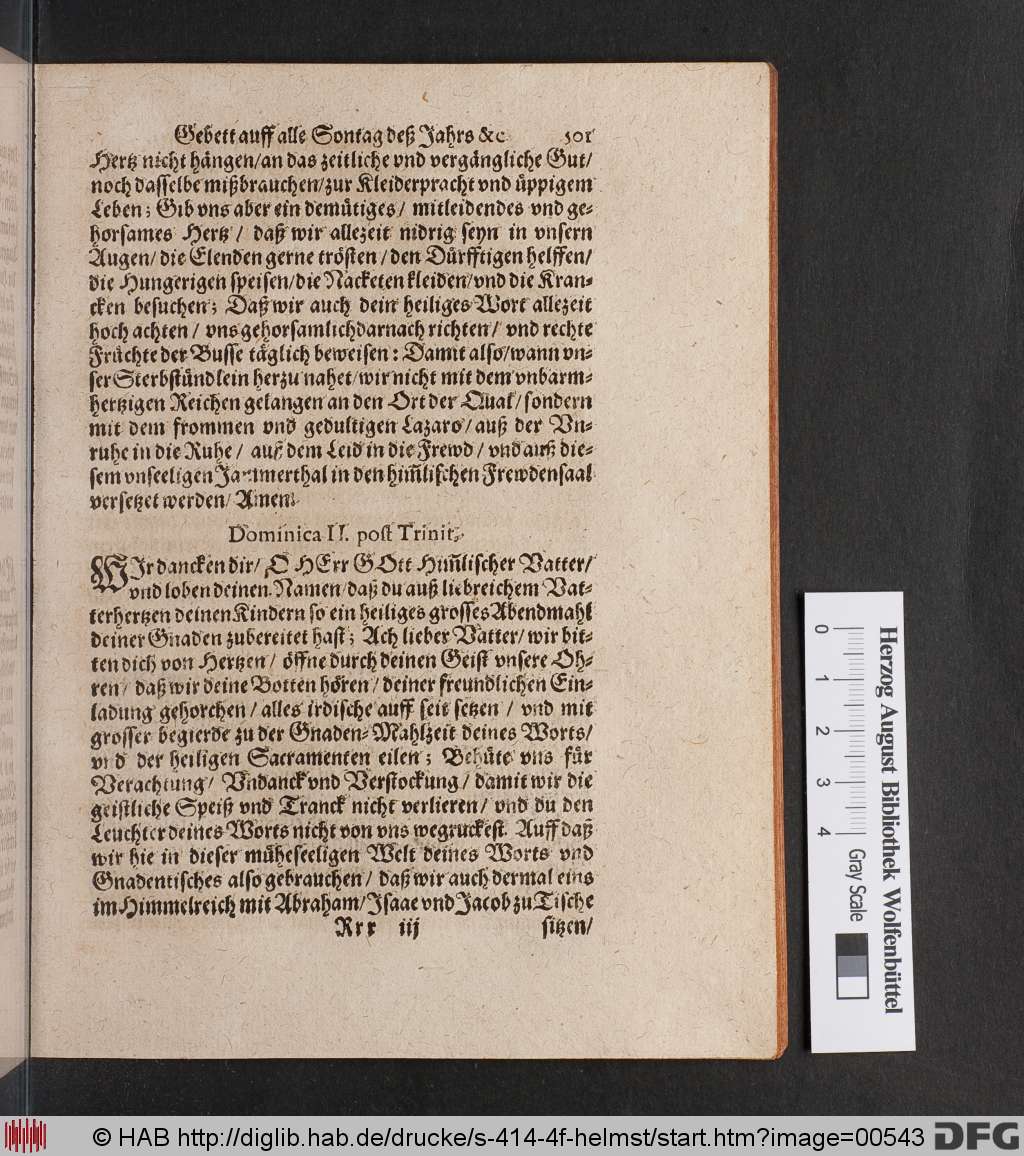 Gebett auff alle Sontag deß Jahrs &c. 501
Hertz nicht hängen/an das zeitliche vnd vergängliche Gut/
noch dasselbe mißbrauchen/zur Kleiderpracht vnd üppigem
Leben; Gib vns aber ein demütiges/ mitleidendes vnd ge-
horsames Hertz / daß wir allezeit nidrig seyn in vnsern
Augen/ die Elenden gerne trösten / den Dürfftigen helffen/
die Hungerigen speisen/die Nacketen kleiden/vnd die Kran-
cken besuchen; Daß wir auch dein heiliges Wort allezeit
hoch achten / vns gehorsamlich darnach richten / vnd rechte
Früchte der Busse täglich beweisen: Damit also/wann vn-
ser Sterbstündlein herzu nahet/wir nicht mit dem vnbarm-
hertzigen Reichen gelangen an den Ort der Qual/ sondern
mit dem frommen vnd gedultigen Lazaro/ auß der Vn-
ruhe in die Ruhe / auß dem Leid in die Frewd / vnd auß die-
sem vnseeligen Jammerthal in den him̃lischen Frewdensaal
versetzet werden/ Amen.
Dominica II. post Trinit.
WIr dancken dir/ O HErr GOtt Him̃lischer Vatter/
vnd loben deinen Namen/daß du auß liebreichem Vat-
terhertzen deinen Kindern so ein heiliges grosses Abendmahl
deiner Gnaden zubereitet hast; Ach lieber Vatter/ wir bit-
ten dich von Hertzen / öffne durch deinen Geist vnsere Oh-
ren / daß wir deine Botten hören / deiner freundlichen Ein-
ladung gehorchen / alles irdische auff seit setzen / vnd mit
grosser begierde zu der Gnaden-Mahlzeit deines Worts/
vnd der heiligen Sacramenten eilen; Behüte vns für
Verachtung/ Vndanck vnd Verstockung / damit wir die
geistliche Speiß vnd Tranck nicht verlieren/ vnd du den
Leuchter deines Worts nicht von vns wegruckest. Auff daß
wir hie in dieser müheseeligen Welt deines Worts vnd
Gnadentisches also gebrauchen / daß wir auch dermal eins
im Himmelreich mit Abraham/Isaac vnd Jacob zu Tische
Rrr iij sitzen/
0 1 2 3 4
Gray Scale
Herzog August Bibliothek Wolfenbüttel
© HAB http://diglib.hab.de/drucke/s-414-4f-helmst/start.htm?image=00543 DFG